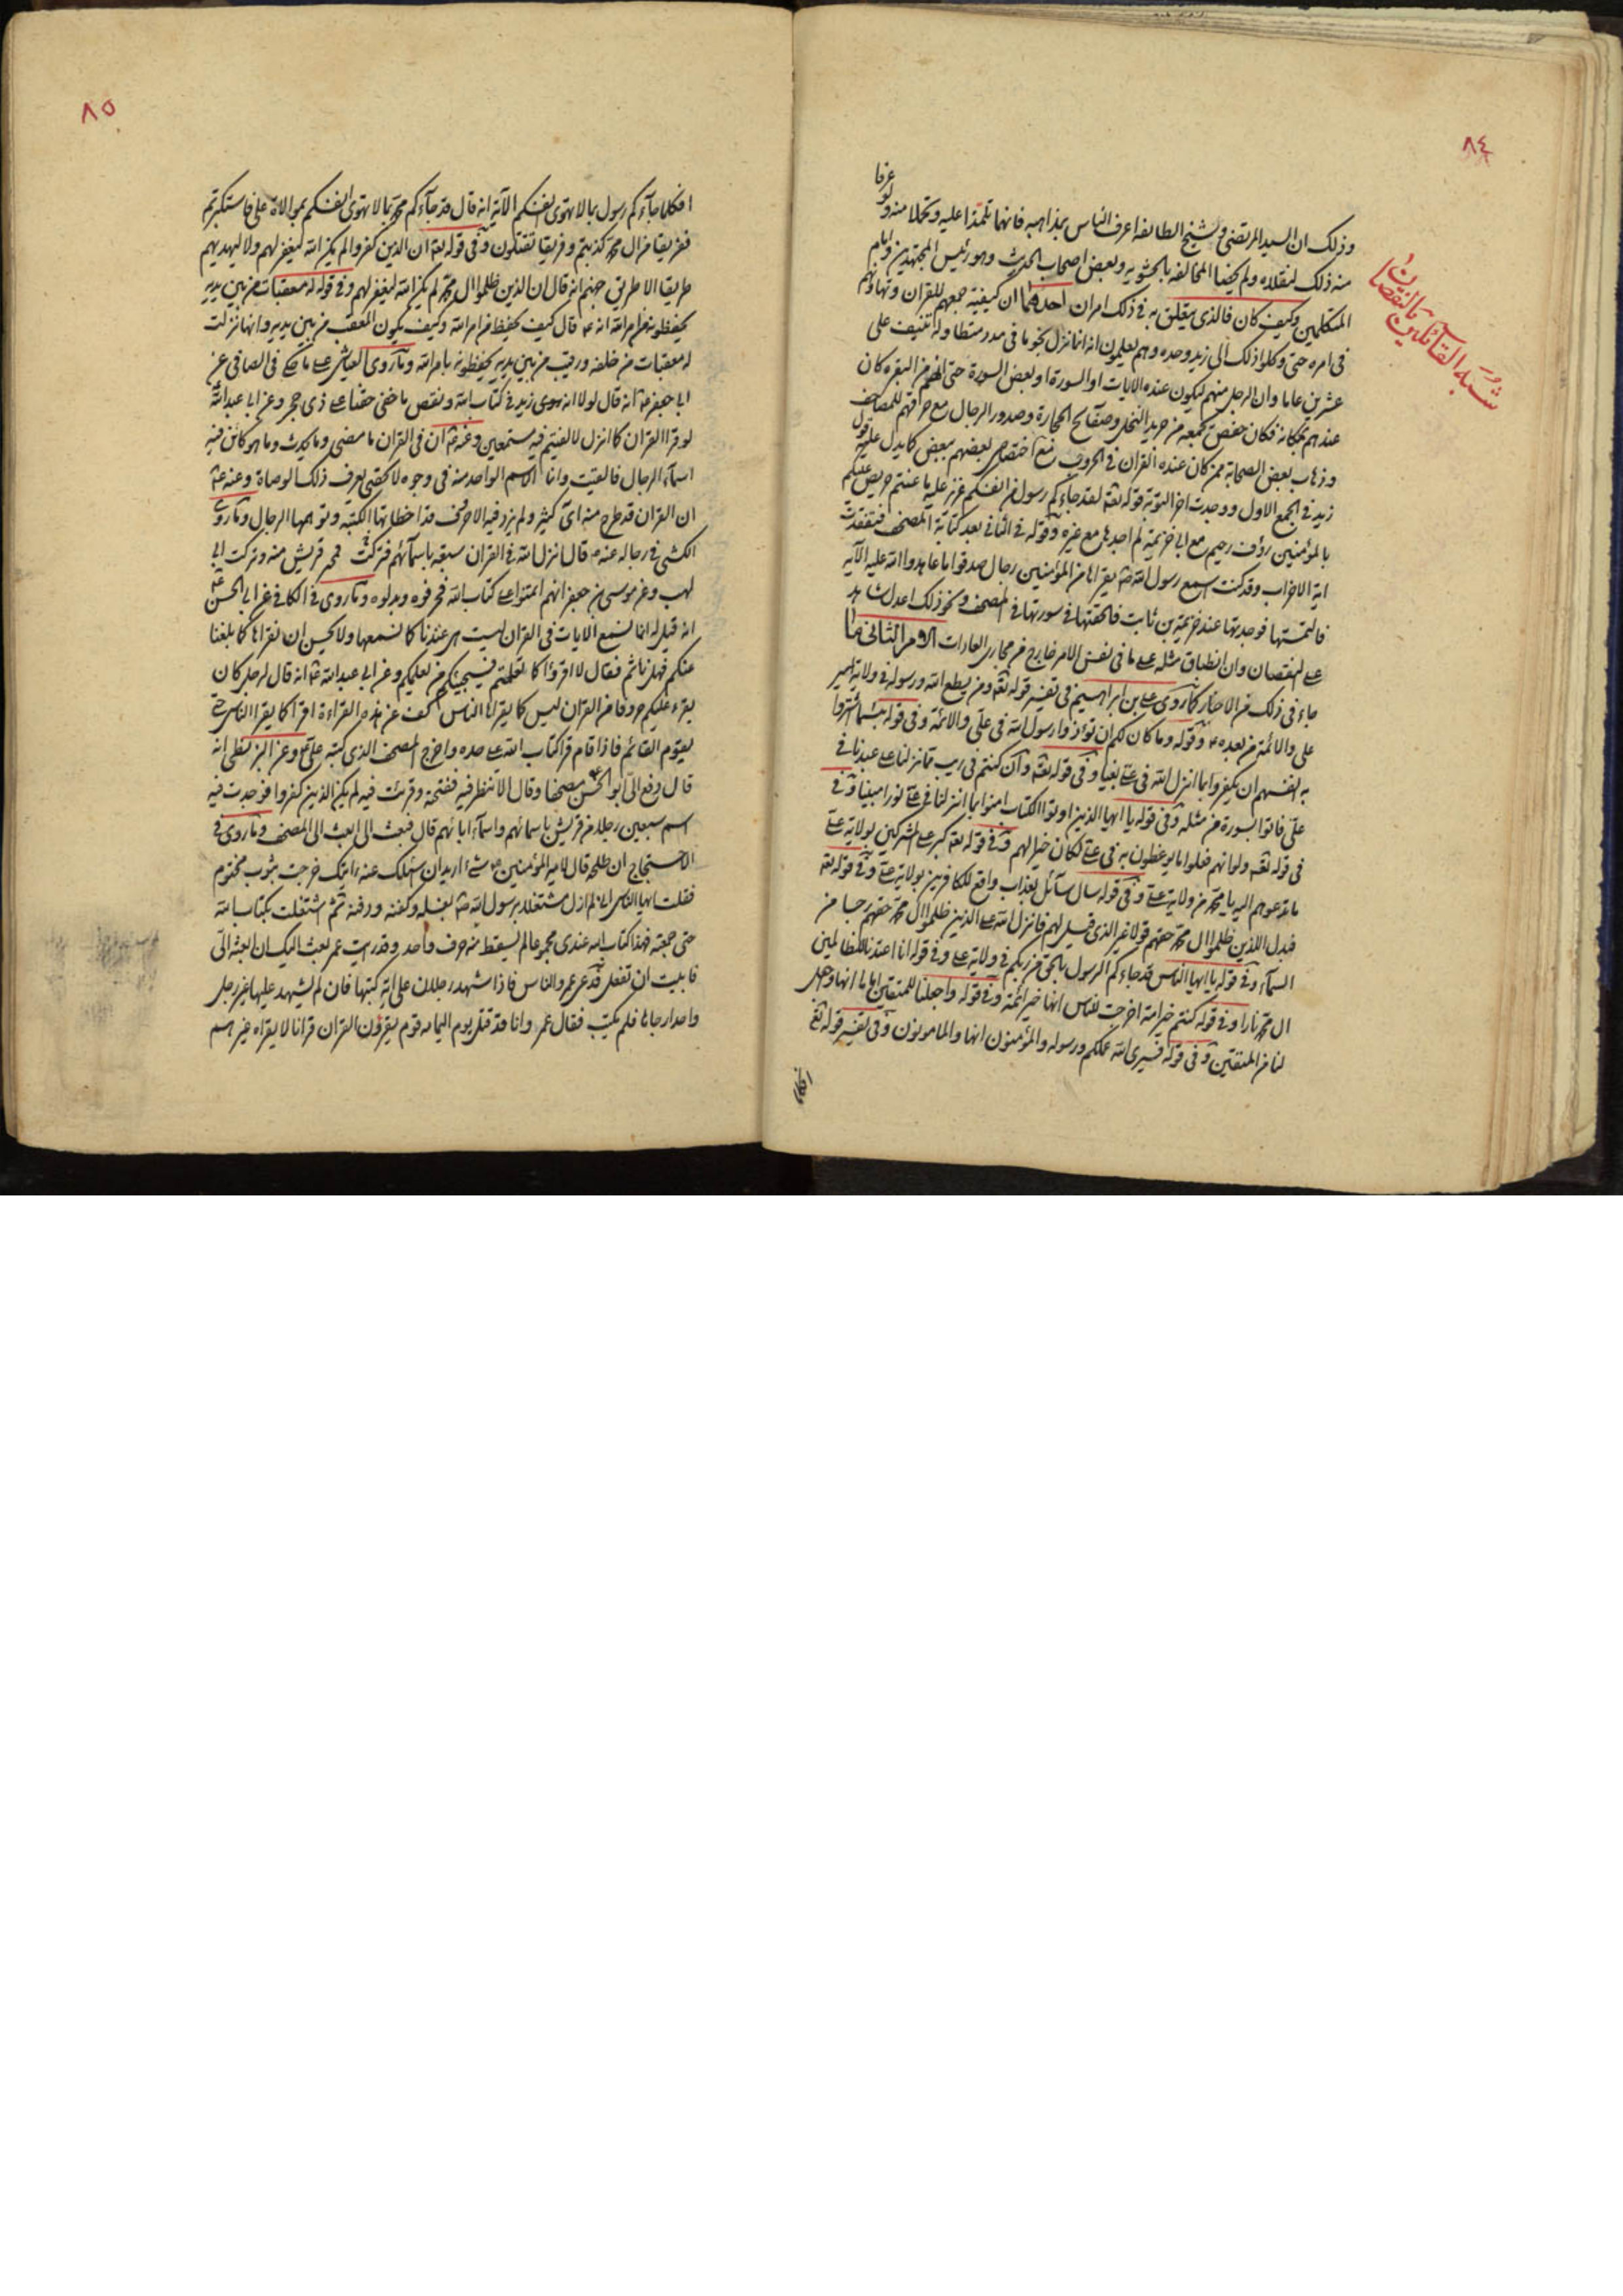 ٨٤
شبه القائلين بالنقصان
عرفا
وذلك ان السيد المرتضى وشيخ الطائفة اعرف الناس بمذاهبه فانهما تلمذا عليه وتحملا منه ولو
منه ذلك لنقلاه ولم يخصا المخالفة بالحشوية وبعض اصحاب الحديث وهو رئيس المجتهدين وامام
المتكلمين وكيف كان فالذى يتعلق به فى ذلك امران احدهما ان كيفية جمعهم للقران وتهاونهم
فى امره حتى وكلوا ذلك الى زيد وحده وهم يعلمون انه انما نزل نجوما فى مدد متطاولة تنيف على
عشرين عاما وان الرجل منهم ليكون عنده الايات او السورة او بعض السورة حتى البقره كان
عندهم بمكانة فكان يجمعه من جريد النخل وصفائح الحجارة وصدور الرجال مع حرقهم للمصاحف
وذهاب بعض الصحابة ممن كان عنده القران فى الحروب مع اختصاص بعضهم ببعض كما يدل عليه قول
زيد فى الجمع الاول ووجدت اخر التوبة قوله تعه لقد جاءكم رسول من انفسكم عزيز عليه ما عنتم حريص عليكم
بالمؤمنين رؤف رحيم مع ابى خزيمة لم اجدها مع غيره وقوله فى الثانى بعد كتابة المصحف فتفقدت
اية الاحزاب وقد كنت اسمع رسول الله ص يقراها من المؤمنين رجال صدقوا ما عاهدوا الله عليه الآيه
فالتمستها فوجدتها عند خزيمة بن ثابت فالحقتها فى سورتها فى المصحف ونحو ذلك اعدل شاهد
على النقصان وان انطباق مثله على ما فى نفس الامر خارج عن مجارى العادات الامر الثانى ما
جاء فى ذلك من الاخبار كما روى على بن ابراهيم فى تفسير قوله تعه ومن يطع الله ورسوله فى ولاية امير
على والائمة من بعده وقوله وما كان لكم ان تؤذوا رسول الله فى على والائمة وفى قوله بئسما اشتروا
به انفسهم ان يكفروا بما انزل الله فى على بغيا وفى قوله تعه وان كنتم فى ريب مما نزلنا على عبدنا فى
على فاتوا بسورة من مثله وفى قوله يا ايها الذين اوتوا الكتاب امنوا بما انزلنا فى على نورا مبينا وفى
فى قوله تعه ولو انهم فعلوا ما يوعظون به فى على لكان خيرا لهم وفى قوله تعه كبر على المشركين بولاية على
ما تدعوهم اليه يا محمد من ولاية على وفى قوله سال سائل بعذاب واقع للكافرين بولاية على وفى قوله تعه
فبدل الذين ظلموا ال محمد حقهم قولا غير الذى قيل لهم فانزلنا على الذين ظلموا ال محمد حقهم رجسا من
السماء وفى قوله يا ايها الناس قد جاءكم الرسول بالحق من ربكم فى ولاية على وفى قوله انا اعتدنا للظالمين
ال محمد نارا وفى قوله كنتم خير امة اخرجت للناس انها خير ائمة وفى قوله واجعلنا للمتقين اماما انها وجعل
لنا من المتقين وفى قوله فسيرى الله عملكم ورسوله والمؤمنون انها والمامونون وفى تفسير قوله تع
افكلما
٨٥
افكلما جاءكم رسول بما لا تهوى انفسكم الآية انه قال قد جاءكم محمد بما لا تهوى انفسكم بموالاة على فاستكبرتم
ففريقا من ال محمد كذبتم وفريقا تقتلون وفى قوله تعه ان الذين كفروا لم يكن الله ليغفر لهم ولا ليهديهم
طريقا الا طريق جهنم انه قال ان الذين ظلموا ال محمد لم يكن الله ليغفر لهم وفى قوله له معقبات من بين يديه
يحفظونه من امر الله انه ع قال كيف يحفظ من امر الله وكيف يكون المعقب من بين يديه وانها نزلت
له معقبات من خلفه ورقيب من بين يديه يحفظونه بامر الله وما روى العياشى على ما فى الصافى عن
ابى جعفر ع انه قال لولا انه زيد فى كتاب الله ونقص ما خفى حقنا على ذى حجر وعن ابى عبد الله
لو قرا القران كما انزل لالفيتم فيه مسمين وعنه ع ان فى القران ما مضى وما يحدث وما هو كائن فيه
اسماء الرجال فالقيت وانما الاسم الواحد منه فى وجوه لا تحصى يعرف ذلك الوصاة وعنه ع
ان القران قد طرح منه اى كثير ولم يزد فيه الا حرف قد اخطات بها الكتبة وتوهمها الرجال وما روى
الكشى فى رجاله عنه قال انزل الله فى القران سبعة باسمائهم فمحت قريش منه وتركت ابى
لهب وعن موسى بن جعفر انهم ائتمنوا على كتاب الله فحرفوه وبدلوه وما روى فى الكافى عن ابى الحسن ع
انه قيل له انا نسمع الايات فى القران ليست هى عندنا كما نسمعها ولا نحسن ان نقراها كما بلغنا
عنكم فهل ناثم فقال لا اقرؤا كما تعلمتم فسيجيئكم من يعلمكم وعن ابى عبد الله ع انه قال لرجل كان
يقرء عليه حروفا من القران ليس كما يقراها الناس كف عن هذه القراءة اقرا كما يقرا الناس حتى
يقوم القائم فاذا قام قرا كتاب الله على حده واخرج المصحف الذى كتبه على ع وعن البزنطى انه
قال دفع الى ابو الحسن ع مصحفا وقال لا تنظر فيه ففتحته وقرئت فيه لم يكن الذين كفروا فوجدت فيه
اسم سبعين رجلا من قريش باسمائهم واسماء ابائهم قال فبعث الى ابعث الى المصحف وما روى فى
الاحتجاج ان طلحة قال لامير المؤمنين ع شىء اريد ان اسئلك عنه رايتك خرجت بثوب مختوم
فقلت ايها الناس انى لم ازل مشتغلا برسول الله ص بغسله وكفنه ودفنه ثم اشتغلت بكتاب الله
حتى جمعته فهذا كتاب الله عندى مجموعا لم يسقط منه حرف واحد وقد رايت عمر بعث اليك ان ابعثه الى
فابيت ان تفعل فدعى عمر الناس فاذا شهد رجلان على اية كتبها فان لم يشهد عليها غير رجل
واحد ارجاها فلم يكتب فقال عمر وانا قد قتل يوم اليمامه قوم يقرؤن القران قرانا لا يقراه غيرهم